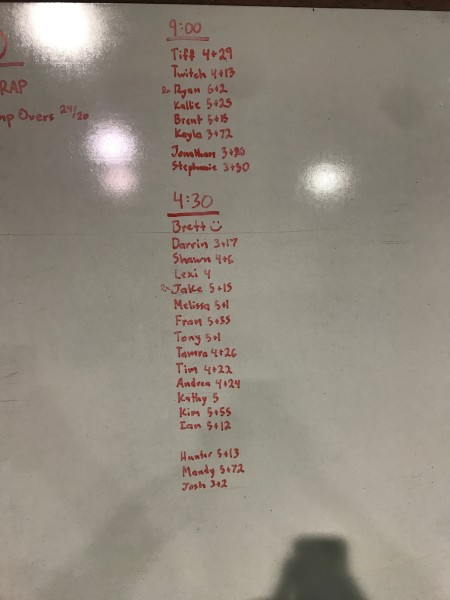 RAP
mp Overs 24/20
9:00
Tiff 4+29
Twitch 4+13
Rx Ryan 6+2
Kallie 5+25
Brent 5+15
Kayla 3+72
Jonathan
Stephanie 3+30
4:30
Brett
Darrin 3+17
Shawn 4+6
Lexi 4
Rx Jake 5+15
Melissa 5+1
Fran 5+55
Tony 5+1
Tamra 4+26
Tim 4+22
Andrea 4+24
Kathy 5
Kim 5+55
Ian 5+12
Hunter 5+13
Mandy 5+72
Josh 3+2